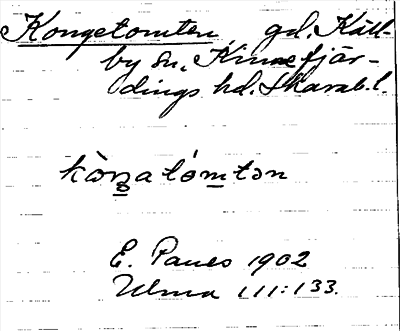 Kongetomten, gd. Käll-
by sn, Kinnefjär-
dings hd. Skarab. l.
kòŋatómtən
E. Panes 1902
Ulma 111:133.